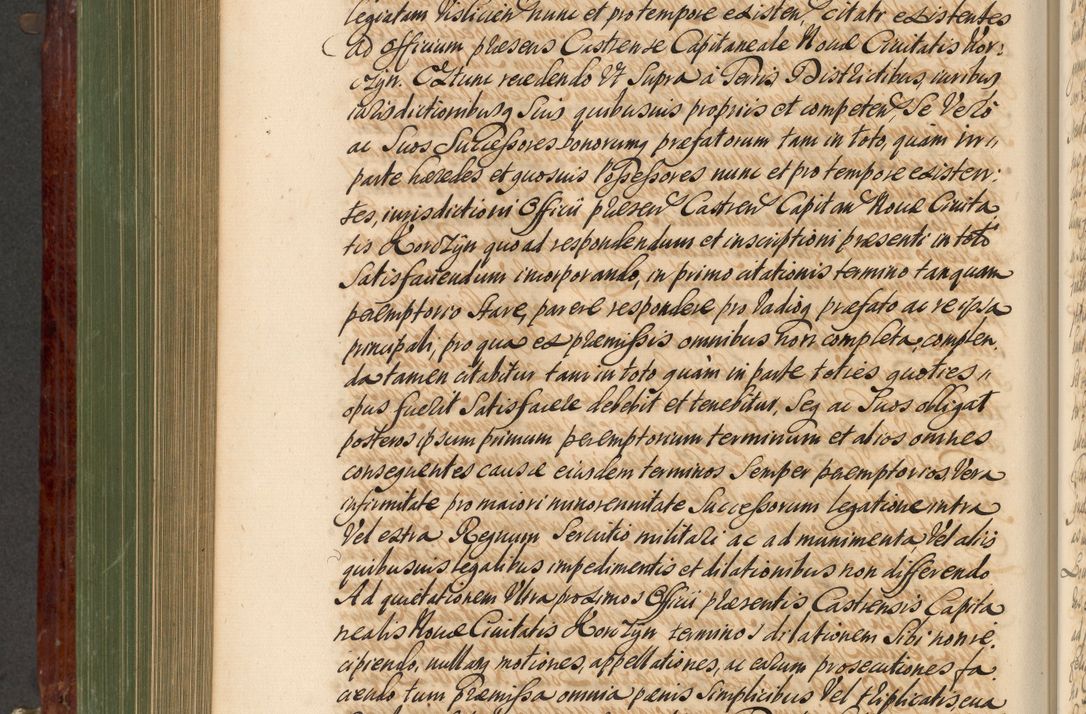 legiatam Vislicien nunc et pro tempore existen, citatr existentes
ad Officium præsens Castrense Capitaneale Novæ Civitatis Kor:
czyn. Extunc recedendo Vt Supra à Terris, Districtibus, iuribus
iurisdictionibusq Suis quibusuis proprijs et competen, Se Verò
ac Suos Successores bonorumq præfatorum tam in toto, quàm in
parte hæredes et quosuis Possessores nunc et pro tempore existen:
tes, iurisdictioni Officii præsen Castren Capitan Novæ Civita
tis Korczÿn quo ad respondendum et inscriptioni præsenti in toto
Satisfaciendum incorporando, in primo citationis termino tanquam
peremptorio Stare, parere respondere pro Vadioq præfato ac re ipsa
principali, pro qua ex præmissis omnibus non completa, complen
da tamen citabitur tam in toto quàm in parte toties quoties
opus fuerit Satisfacere debebit et tenebitur, Seq ac Suos obligat
posteros ipsum primum peremptorium terminum et alios omnes
consequentes causæ eiusdem terminos Semper peremptorios, Vera
infirmitate pro maiori minorennitate Successorum legatione intra
Vel extra Regnum Servitio militari ac ad munimenta, Vel alijs
quibusuis legalibus impedimentis et dilationibus non differendo
Ad quietationem Vltra proximos Officii præsentis Castrensis Capita
nealis Novæ Civitatis Korczÿn terminos dilationem Sibi non re,
cipiendo, nullasq motiones, appellationes, ac earum prosecutiones fa
ciendo tum Præmissa omnia pænis Simplicibus Vel triplicatis, eua